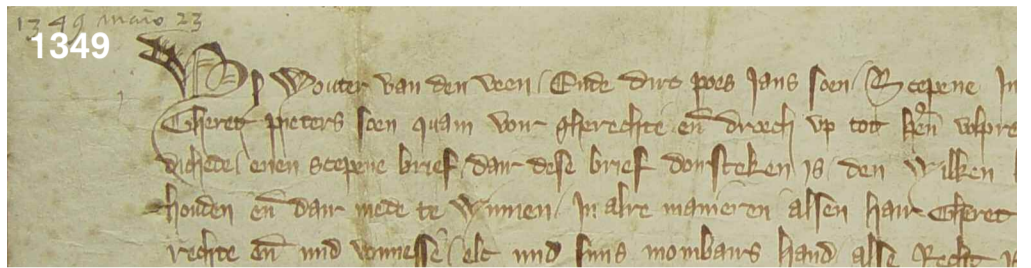 1349 maio 23
1349
Wy Wouter van den veen Ende dirc poes Jans soen Scepene In
Gheret pieters soen quam voir gherechte en̄ droech vp tot hēn
dichede enen scepene brief dair dese brief doirsteken is den Wilken
houden en̄ dair mede te Winnen In alre manieren alsen hair Gheret
rechte en̄ mid vonnesse elc mid sijns mombairs hand alse Recht is